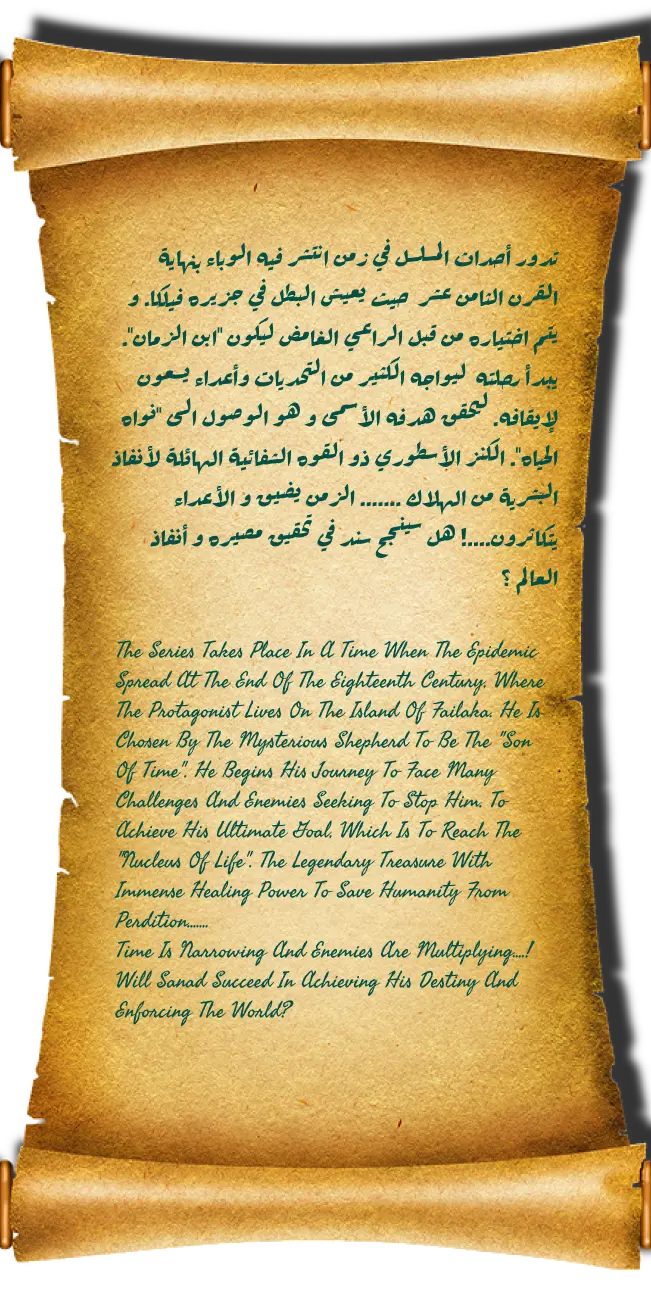 تدور أحداث المسلسل في زمن انتشر فيه الوباء بنهاية
القرن الثامن عشر حيث يعيش البطل في جزيره فيلكا. و
يتم اختياره من قبل الراعي الغامض ليكون "ابن الزمان".
يبدأ رحلته ليواجه الكثير من التحديات وأعداء يسعون
لإيقافه. ليحقق هدفه الأسمى و هو الوصول الى "نواه
الحياه". الكنز الأسطوري ذو القوه الشفائية الهائلة لأنقاذ
البشرية من الهلاك ....... الزمن يضيق و الأعداء
يتكاثرون....! هل سينجح سند في تحقيق مصيره و أنقاذ
العالم ؟
The Series Takes Place In A Time When The Epidemic
Spread At The End Of The Eighteenth Century, Where
The Protagonist Lives On The Island Of Failaka. He Is
Chosen By The Mysterious Shepherd To Be The "Son
Of Time". He Begins His Journey To Face Many
Challenges And Enemies Seeking To Stop Him. To
Achieve His Ultimate Goal, Which Is To Reach The
"Nucleus Of Life". The Legendary Treasure With
Immense Healing Power To Save Humanity From
Perdition.......
Time Is Narrowing And Enemies Are Multiplying....!
Will Sanad Succeed In Achieving His Destiny And
Enforcing The World?